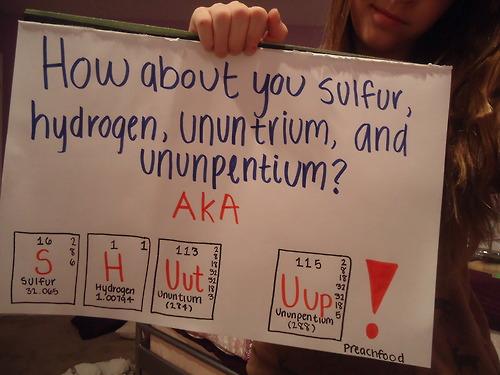 How about you sulfur,
hydrogen, ununtrium, and
ununpentium?
AKA
16 2 8 6
S
Sulfur
32.065
1 1
H
Hydrogen
1.00794
113 2 8 18 32 32 18 3
Uut
Ununtium
(284)
115 2 8 18 32 32 18 5
Uup
Ununpentium
(288)
!
Preachfood